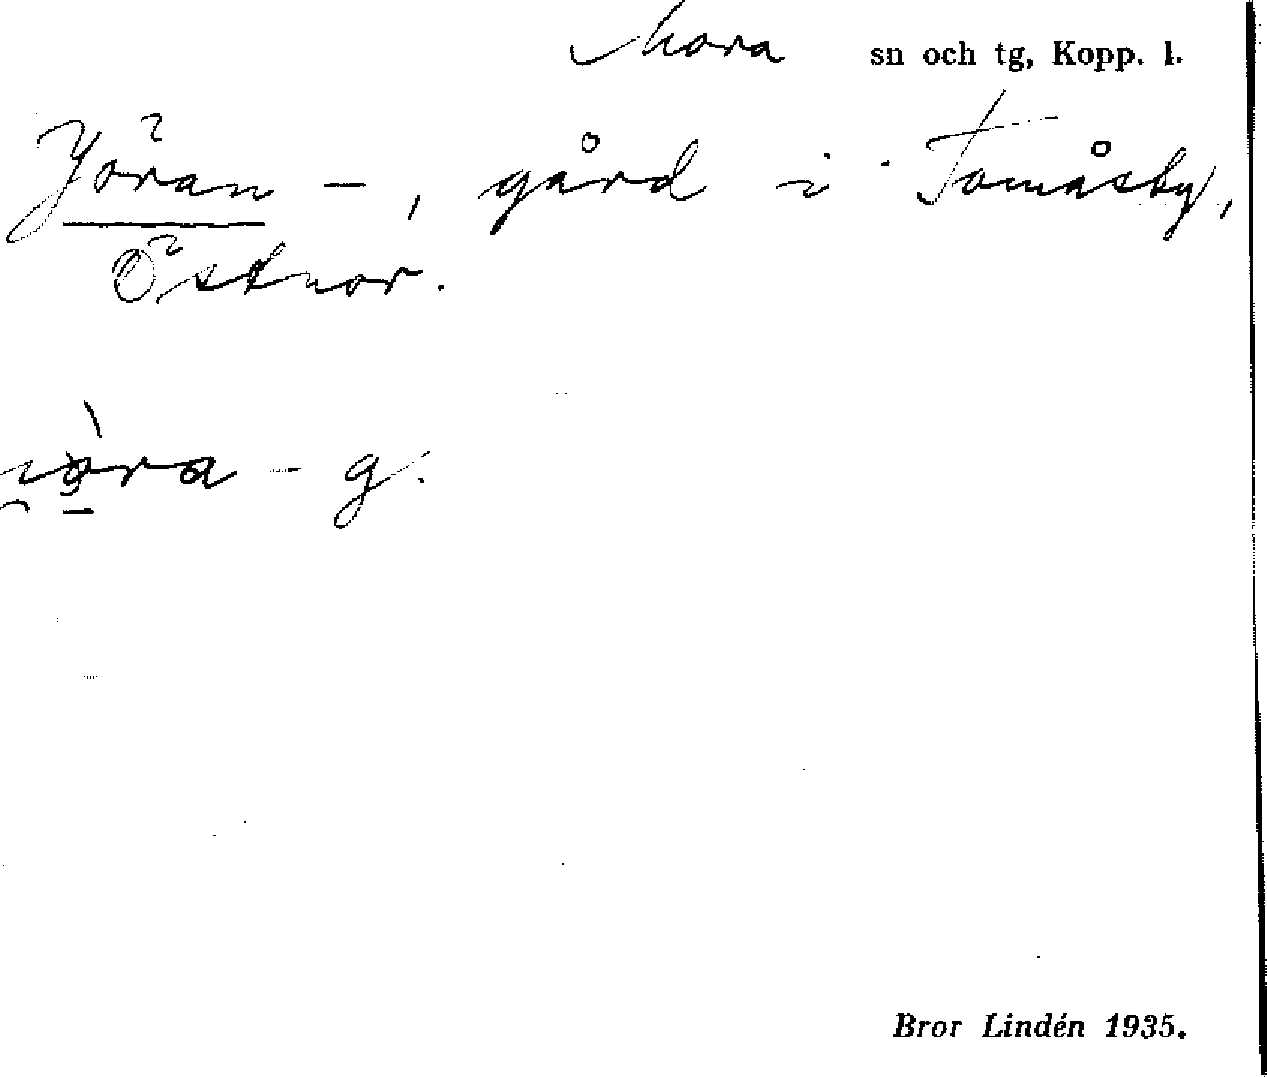 Mora sn och tg, Kopp. l.
Jöran –, gård i Tomåsby,
Östnor.
– g.
Bror Lindén 1935.